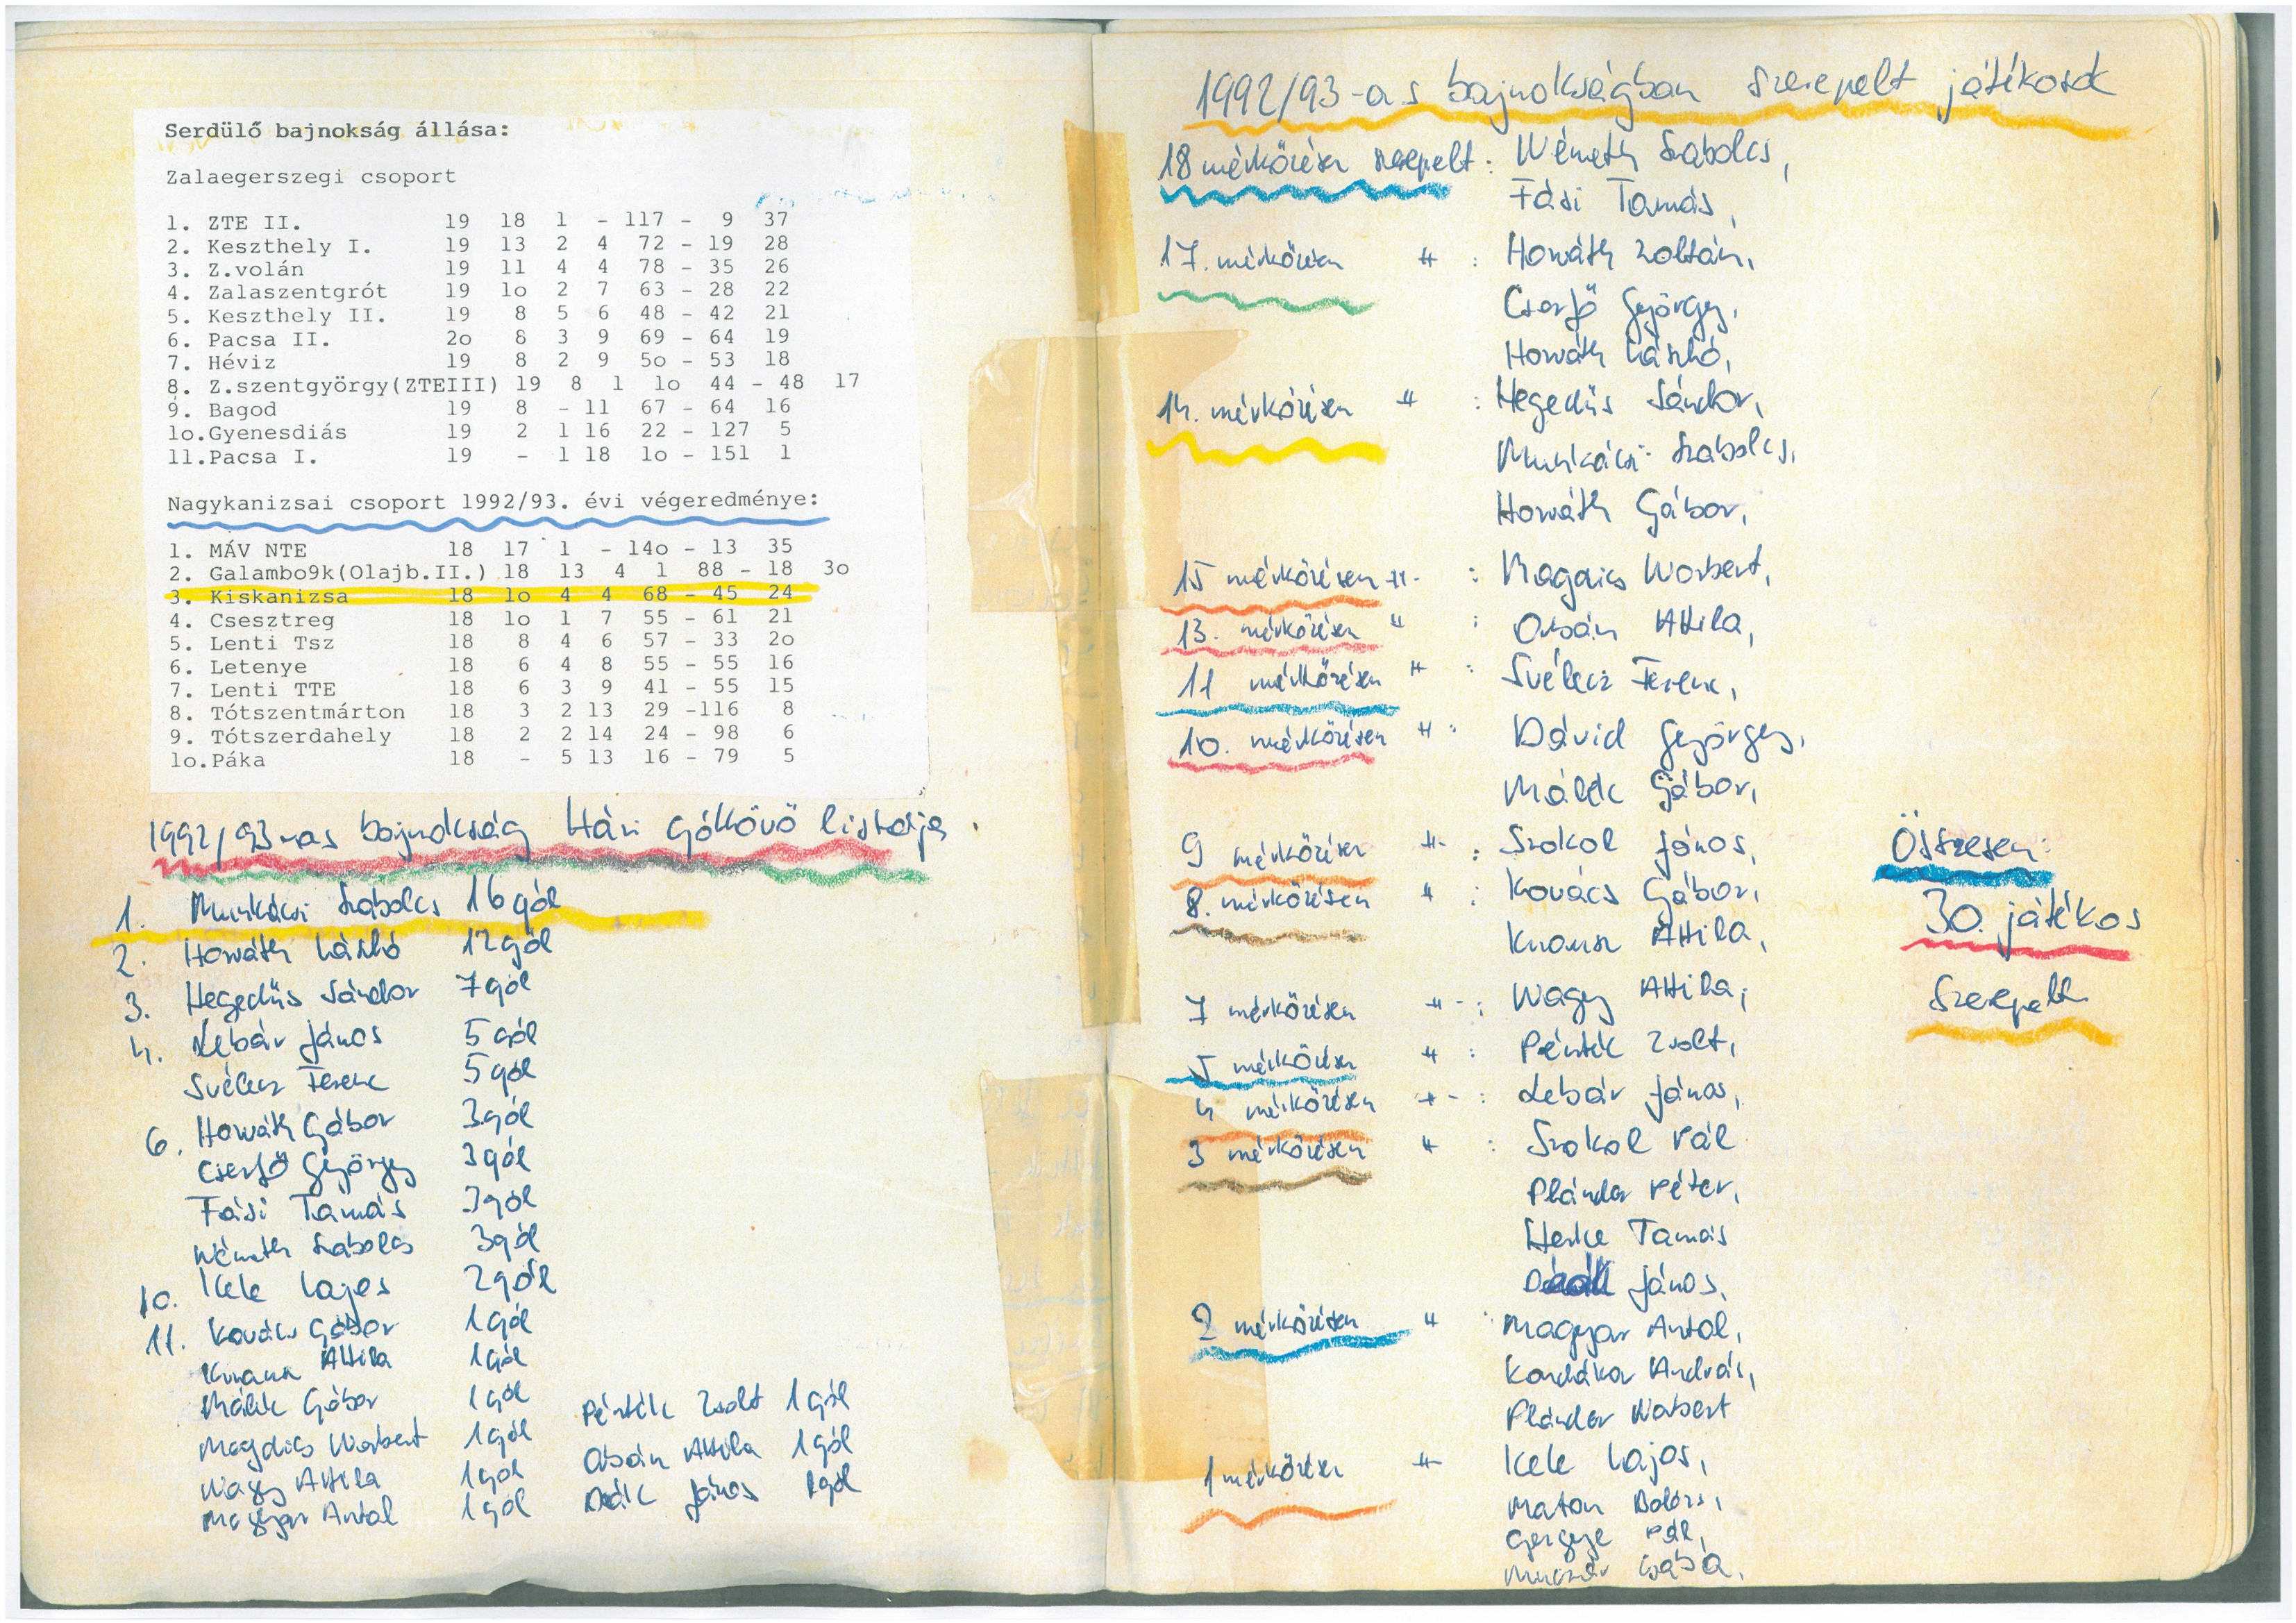 Serdülő bajnokság állása:
Zalaegerszegi csoport
1. ZTE II. 19 18 1 - 117 - 9 37
2. Keszthely I. 19 13 2 4 72 - 19 28
3. Z.volán 19 11 4 4 78 - 35 26
4. Zalaszentgrót 19 lo 2 7 63 - 28 22
5. Keszthely II. 19 8 5 6 48 - 42 21
6. Pacsa II. 2o 8 3 9 69 - 64 19
7. Héviz 19 8 2 9 5o - 53 18
8. Z.szentgyörgy(ZTEIII) 19 8 1 lo 44 - 48 17
9. Bagod 19 8 - 11 67 - 64 16
lo.Gyenesdiás 19 2 1 16 22 - 127 5
11.Pacsa I. 19 - 1 18 lo - 151 1
Nagykanizsai csoport 1992/93. évi végeredménye:
1. MÁV NTE 18 17 1 - 14o - 13 35
2. Galambo9k(Olajb.II.) 18 13 4 1 88 - 18 3o
3. Kiskanizsa 18 lo 4 4 68 - 45 24
4. Csesztreg 18 lo 1 7 55 - 61 21
5. Lenti Tsz 18 8 4 6 57 - 33 2o
6. Letenye 18 6 4 8 55 - 55 16
7. Lenti TTE 18 6 3 9 41 - 55 15
8. Tótszentmárton 18 3 2 13 29 -116 8
9. Tótszerdahely 18 2 2 14 24 - 98 6
lo.Páka 18 - 5 13 16 - 79 5
1992/93-as bajnokság Házi góllövő listája
1. Munkácsi Szabolcs 16 gól
2. Horváth László 12 gól
3. Hegedüs Sándor 7 gól
4. Lebár János 5 gól
Svélecz Ferenc 5 gól
6. Horváth Gábor 3 gól
Cserfő György 3 gól
Fási Tamás 3 gól
Németh Szabolcs 3 gól
10. Kele Lajos 2 gól
11. Kovács Gábor 1 gól
Knausz Attila 1 gól
Málek Gábor 1 gól
Magdics Norbert 1 gól
Nagy Attila 1 gól
Magyar Antal 1 gól
Péntek Zsolt 1 gól
Orbán Attila 1 gól
Deák János 1 gól
1992/93-as bajnokságban szerepelt játékosok
18 mérkőzésen szerepelt: Németh Szabolcs,
Fási Tamás,
17. mérkőzésen -"- : Horváth Zoltán,
Cserfő György,
Horváth László,
14. mérkőzésen -"- : Hegedüs Sándor,
Munkácsi Szabolcs,
Horváth Gábor,
15 mérkőzésen -"- : Magdics Norbert,
13. mérkőzésen -"- : Orbán Attila,
11 mérkőzésen -"- : Svélecz Ferenc,
10. mérkőzésen -"- : Dávid György,
Málek Gábor,
9 mérkőzésen -"- : Szokol János,
8. mérkőzésen -"- : Kovács Gábor,
Knausz Attila,
7 mérkőzésen -"- : Nagy Attila,
5 mérkőzésen -"- : Péntek Zsolt,
4 mérkőzésen -"- : Lebár János,
3 mérkőzésen -"- : Szokol Pál
Plánder Péter,
Herke Tamás
Deák János,
2 mérkőzésen -"- : Magyar Antal,
Kondákor András,
Plánder Norbert
1 mérkőzésen -"- Kele Lajos,
Maton Balázs,
Gergye Pál,
Csaba,
Összesen:
30. játékos
szerepelt